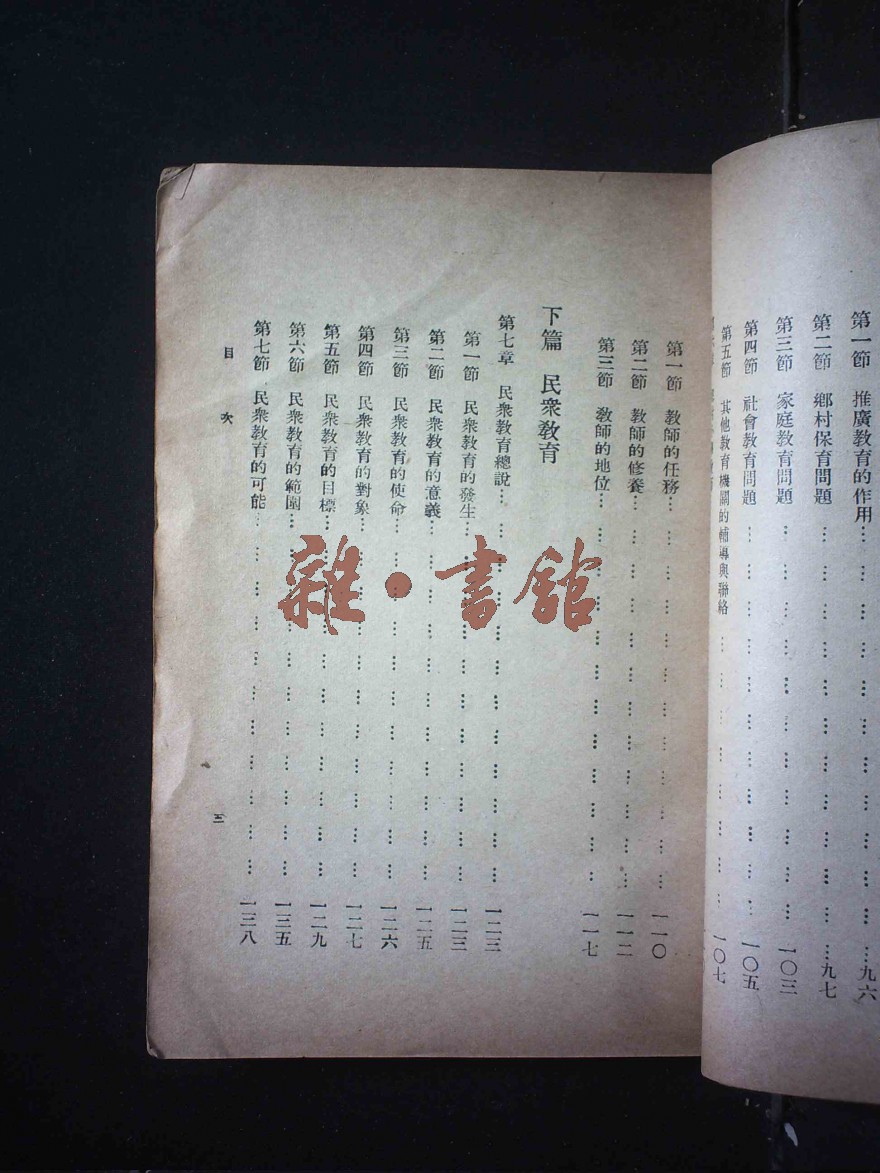 第一節 推廣教育的作用… … … … … … … …九六
第二節 鄉村保育問題 … … … … … … … …九七
第三節 家庭教育問題 … … … … … … … …一〇三
第四節 社會教育問題 … … … … … … … …一〇五
第五節 其他教育機關的輔導與聯絡 … … … … … …一〇七
第一節 教師的任務… … … … … … … … …一一〇
第二節 教師的修養… … … … … … … … …一一二
第三節 教師的地位… … … … … … … … …一一七
下篇 民衆教育
第七章 民衆教育總說… … … … … … … … …一二三
第一節 民衆教育的發生… … … … … … … …一二三
第二節 民衆教育的意義… … … … … … … …一二五
第三節 民衆教育的使命… … … … … … … …一二六
第四節 民衆教育的對象… … … … … … … …一二七
第五節 民衆教育的目標… … … … … … … …一二九
第六節 民衆教育的範圍… … … … … … … …一三五
第七節 民衆教育的可能… … … … … … … …一三八
目次
三
雜·書館